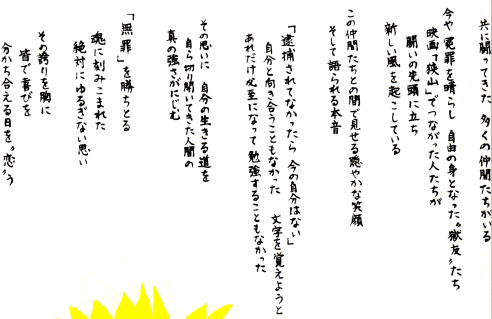 共に闘ってきた 多くの仲間たちがいる
今や 冤罪を晴らし 自由の身となった“獄友”たち
映画「狭山」でつながった人たちが
闘いの先頭に立ち
新しい風を起こしている
この仲間たちとの間で見せる穏やかな笑顔
そして語られる本音
「逮捕されてなかったら 今の自分はない」
自分と向き合うこともなかった 文字を覚えようと
あれだけ必至になって 勉強することもなかった
その思いに 自分の生きる道を
自ら切り開いてきた人間の
真の強さがにじむ
「無罪」を勝ちとる
魂に刻みこまれた
絶対にゆるぎない思い
その誇りを胸に
皆で喜びを
分かち合える日を“恋”う